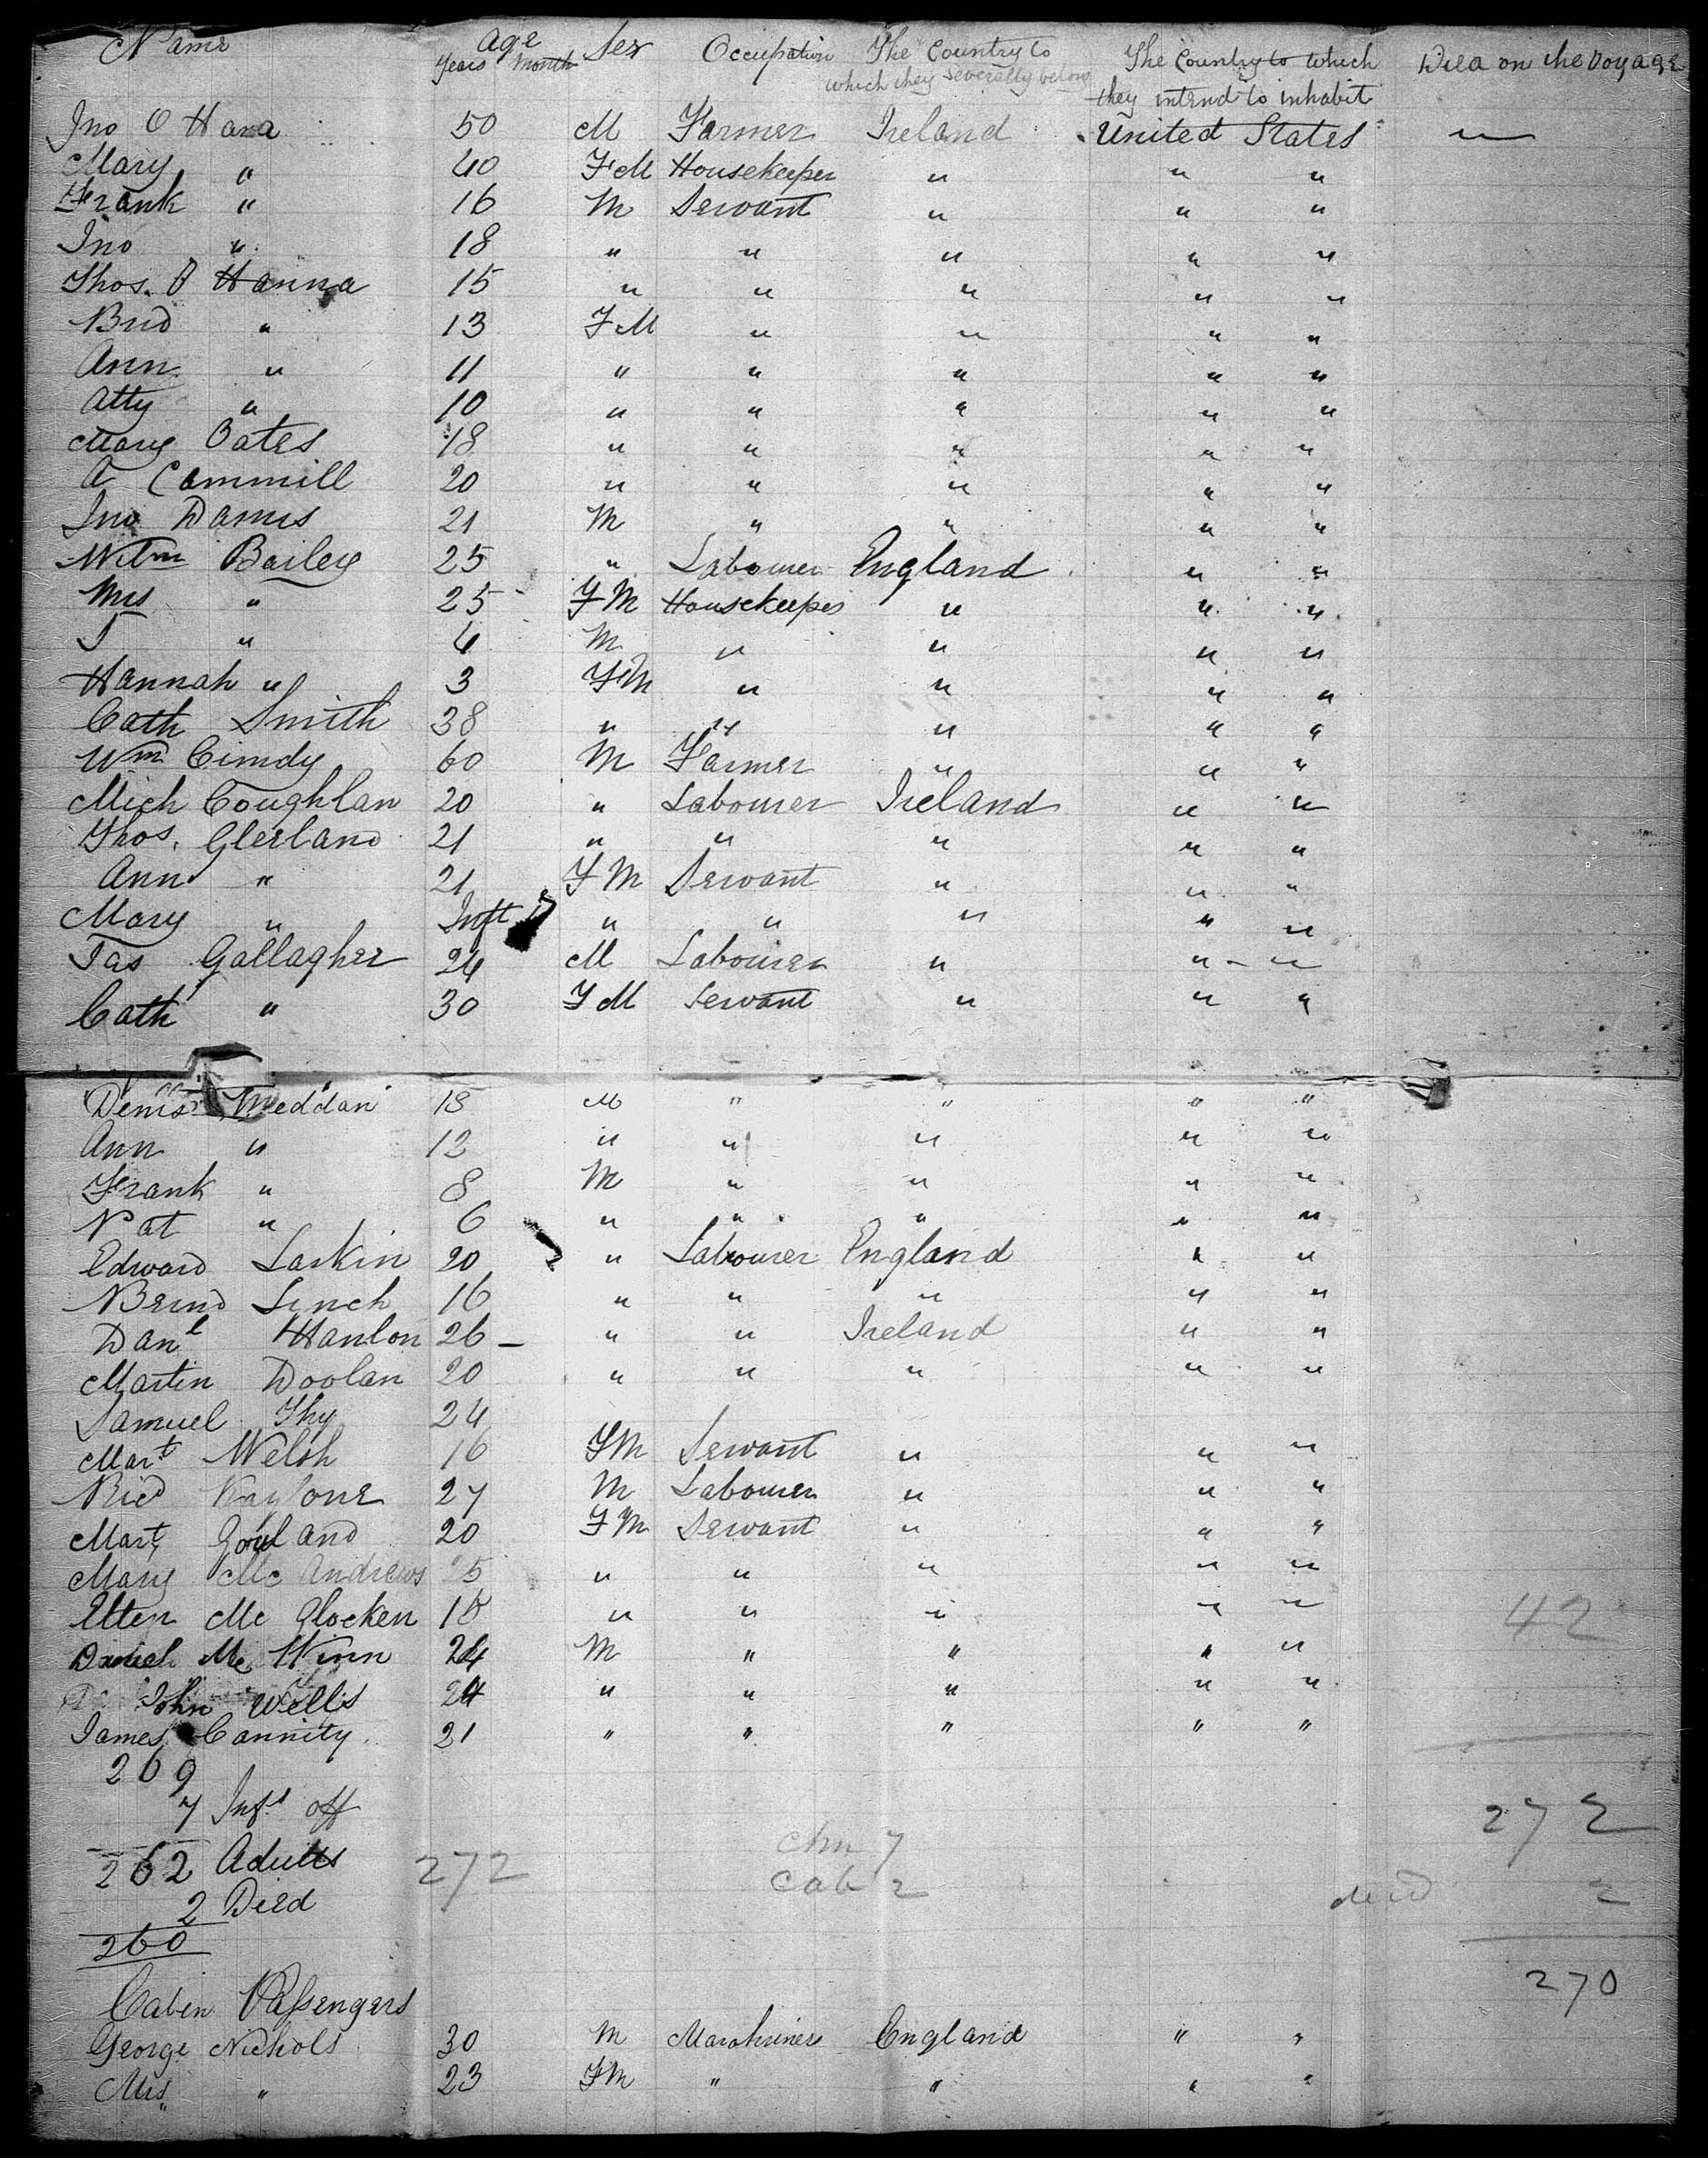 Name Age Years Month Sex Occupation The Country to which they Severally belong The Country to which they intend to inhabit Died on the Voyage
Jno O Hara 50 M Farmer Ireland United States —
Mary " 40 FM Housekeeper " " "
Frank " 16 M Servant " " "
Jno " 18 " " " " "
Thos. O Hanna 15 " " " " "
Brid " 13 FM " " " "
Ann " 11 " " " " "
Atty " 10 " " " " "
Mary Oates 18 " " " " "
A Cammill 20 " " " " "
Jno 21 M " " " "
Wilm Bailey 25 " Labourer England " "
Mrs " 25 FM Housekeeper " " "
J " 6 M " " " "
Hannah " 3 FM " " " "
Cath Smith 38 " " " " "
Wm 60 M Farmer " " "
Mich Coughlan 20 " Labourer Ireland " "
Thos. Glerland 21 " " " " "
Ann " 21 FM Servant " " "
Mary " Inft " " " " "
Jas Gallagher 24 M Labourer " " - "
Cath " 30 FM Servant " " "
Denis Meddan 18 M " " " "
Ann " 12 " " " " "
Frank " 8 M " " " "
Pat " 6 " " " " "
Edward Larkin 20 " Labourer England " "
Linch 16 " " " " "
Danl Hanlon 26 — " " Ireland " "
Martin Doolan 20 " " " " "
Samuel 24
Mart Welsh 16 FM Servant " " "
27 M Labourer " " "
Mart 20 FM Servant " " "
Mary Mc Andrews 25 " " " " "
Ellen Mc Glocken 18 " " " " " 42
Mc Winn 24 M " " " "
John Wells 24 " " " " "
James Cannity 21 " " " " "
269
7 Infs off 272
262 Adults 272 Chn 7
2 Died Cab 2 died 2
260
270
Cabin Passengers
George Nichols 30 M England " "
Mrs " 23 FM " " " "